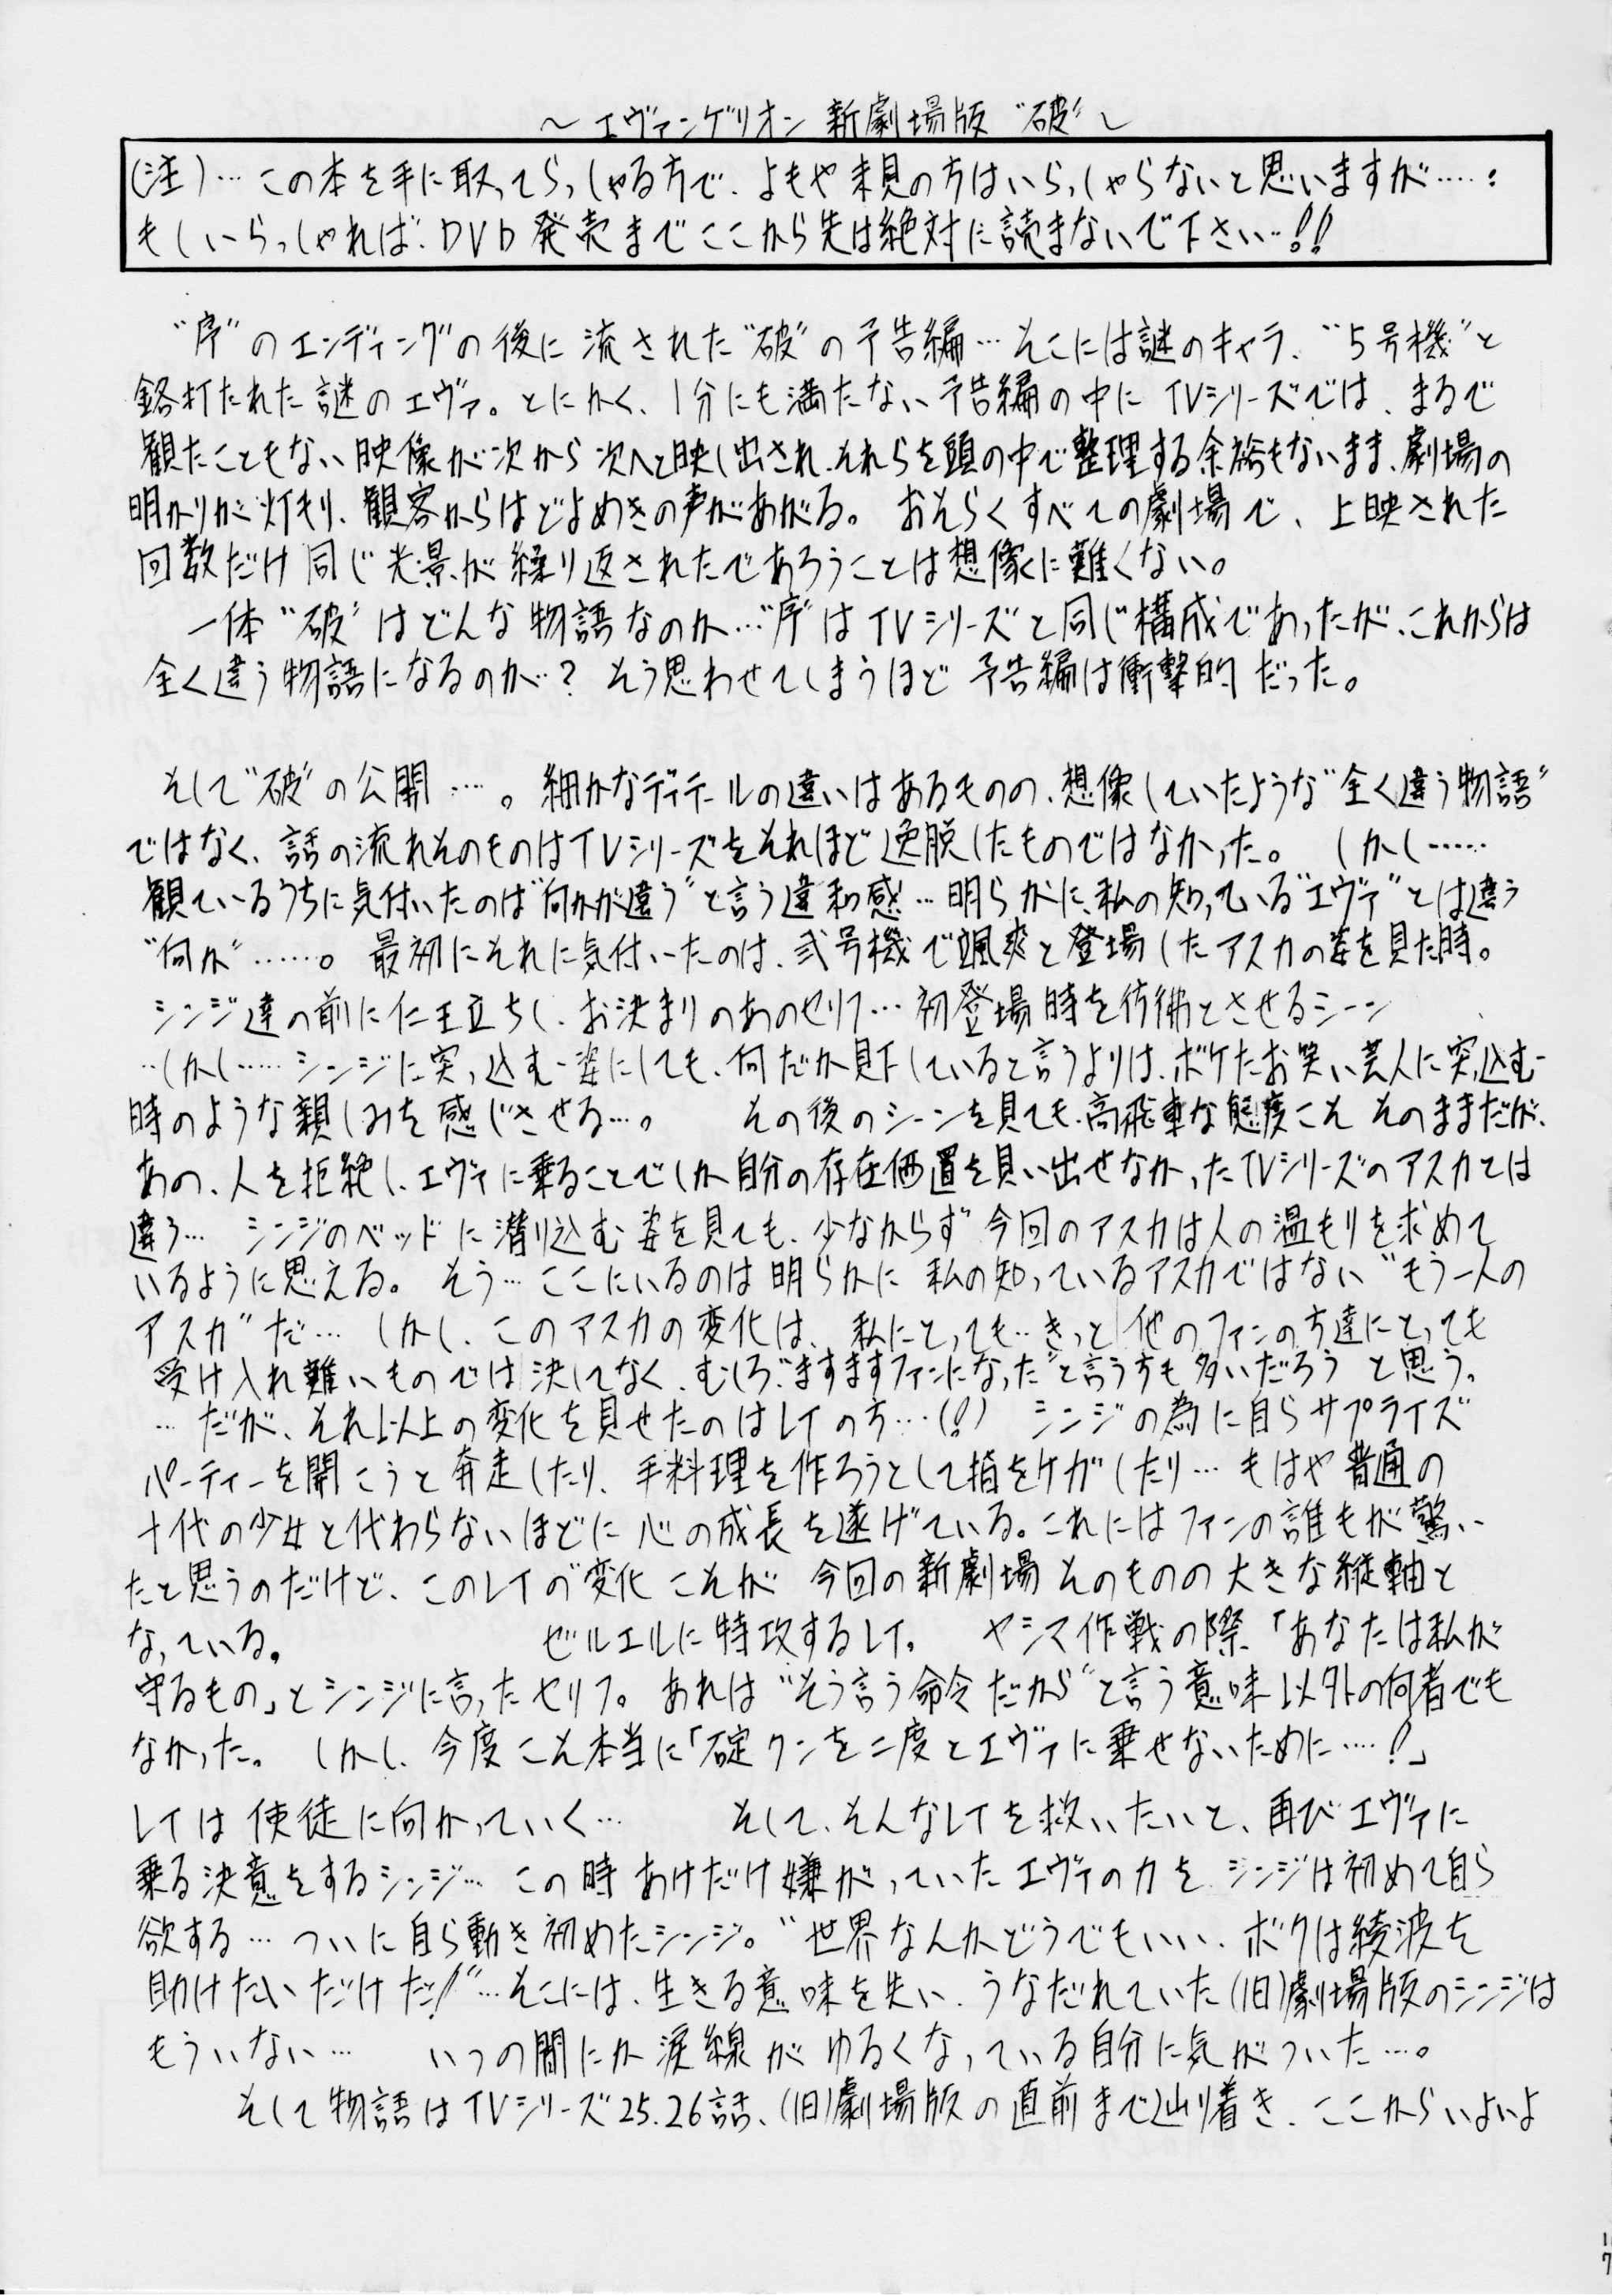 ～エヴァンゲリオン 新劇場版 〝破〟～
(注)…この本を手に取ってらっしゃる方で、よもや未見の方はいらっしゃらないと思いますが……
もしいらっしゃれば、DVD発売までここから先は絶対に読まないで下さい…!!
〝序〟のエンディングの後に流された〝破〟の予告編…そこには謎のキャラ、〝5号機〟と
銘打たれた謎のエヴァ。とにかく、1分にも満たない予告編の中にTVシリーズでは、まるで
観たこともない映像が次から次へと映し出され、それらを頭の中で整理する余裕もないまま、劇場の
明かりが灯もり、観客からはどよめきの声があがる。おそらくすべての劇場で、上映された
回数だけ同じ光景が繰り返されたであろうことは想像に難くない。
一体〝破〟はどんな物語なのか…〝序〟はTVシリーズと同じ構成であったが、これからは
全く違う物語になるのか…?そう思わせてしまうほど予告編は衝撃的だった。
そして〝破〟の公開……。細かなディテールの違いはあるものの、想像していたような〝全く違う物語〟
ではなく、話の流れそのものはTVシリーズをそれほど逸脱したものではなかった。しかし……
観ているうちに気付いたのは〝何かが違う〟と言う違和感…明らかに、私の知っている〝エヴァ〟とは違う
〝何か〟……。最初にそれに気付いたのは、弐号機で颯爽と登場したアスカの姿を見た時。
シンジ達の前に仁王立ちし、お決まりのあのセリフ…初登場時を彷彿とさせるシーン
…しかし……シンジに突っ込む姿にしても、何だか見下していると言うよりは、ボケたお笑い芸人に突っ込む
時のような親しみを感じさせる…。その後のシーンを見ても、高飛車な態度こそそのままだが、
あの、人を拒絶し、エヴァに乗ることでしか自分の存在価置を見い出せなかったTVシリーズのアスカとは
違う…シンジのベッドに潜り込む姿を見ても、少なからず今回のアスカは人の温もりを求めて
いるように思える。そう…ここにいるのは明らかに私の知っているアスカではない〝もう一人の
アスカ〟だ…しかし、このアスカの変化は、私にとっても…きっと他のファンの方達にとっても
受け入れ難いものでは決してなく、むしろ〝ますますファンになった〟と言う方も多いだろうと思う。
…だが、それ以上の変化を見せたのはレイの方…(!)シンジの為に自らサプライズ
パーティーを開こうと奔走したり、手料理を作ろうとして指をケガしたり…もはや普通の
十代の少女と代わらないほどに心の成長を遂げている。これにはファンの誰もが驚い
たと思うのだけど、このレイの変化こそが今回の新劇場そのものの大きな縦軸と
なっている。ゼルエルに特攻するレイ。ヤシマ作戦の際、「あなたは私が
守るもの」とシンジに言ったセリフ。あれは〝そう言う命令だから〟と言う意味以外の何者でも
なかった。しかし、今度こそ本当に「碇クンを二度とエヴァに乗せないために……!」
レイは使徒に向かっていく…そして、そんなレイを救いたいと、再びエヴァに
乗る決意をするシンジ…この時あけだけ嫌がっていたエヴァの力を、シンジは初めて自ら
欲する…ついに自ら動き初めたシンジ。〝世界なんかどうでもいい、ボクは綾波を
助けたいだけだ!〟…そこには、生きる意味を失い、うなだれていた(旧)劇場版のシンジは
もういない…いつの間にか涙線がゆるくなっている自分に気がついた…。
そして物語はTVシリーズ25.26話、(旧)劇場版の直前まで辿り着き、ここからいよいよ